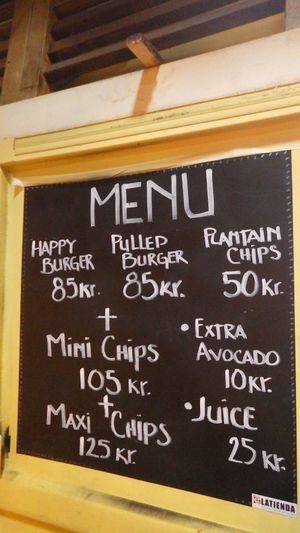 MENU
HAPPY BURGER
85 Kr.
PULLED BURGER
85 Kr.
PLANTAIN CHIPS
50 Kr.
+
MINI CHIPS
105 Kr.
+
MAXI CHIPS
125 Kr.
• EXTRA AVOCADO
10 Kr.
• JUICE
25 Kr.
LATIENDA